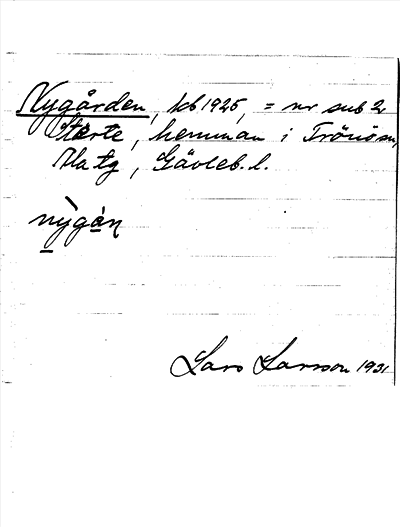 Nygården, kb 1925, = nr sub 2
Sterte, hemman i Trönö sn,
Ala tg, Gävleb. l.
nỳgàn
Lars Larsson 1931